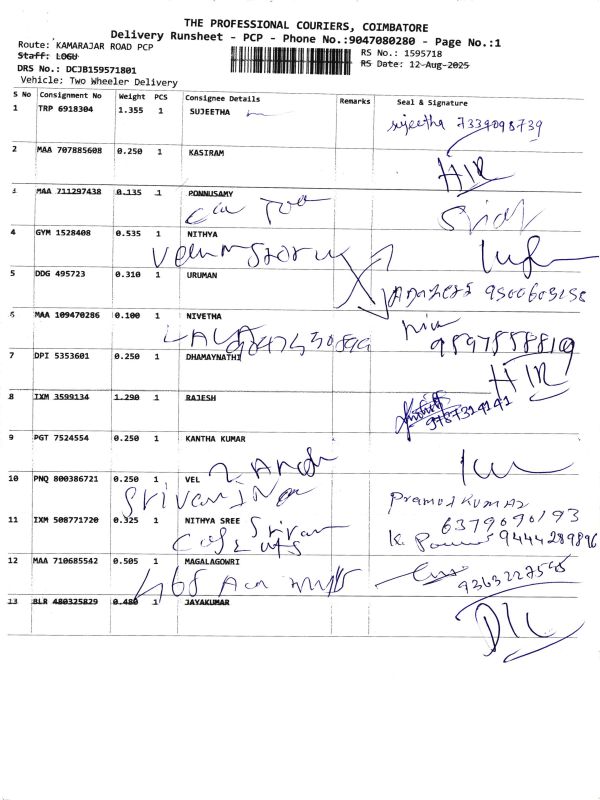 THE PROFESSIONAL COURIERS, COIMBATORE
Delivery Runsheet - PCP - Phone No.:9047080280 - Page No.:1
Route: KAMARAJAR ROAD PCP
RS No.: 1595718
Staff: LOGU
RS Date: 12-Aug-2025
DRS No.: DCJB159571801
Vehicle: Two Wheeler Delivery
S No Consignment No Weight PCS Consignee Details Remarks Seal & Signature
1 TRP 6918304 1.355 1 SUJEETHA
sujeetha 7339098739
2 MAA 707885608 0.250 1 KASIRAM
3 MAA 711297438 0.135 1 PONNUSAMY
4 GYM 1528408 0.535 1 NITHYA
5 DDG 495723 0.310 1 URUMAN
6 MAA 109470286 0.100 1 NIVETHA
LALA
7 DPI 5353601 0.250 1 DHAMAYNATHI
8 IXM 3599134 1.290 1 RAJESH
9787314141
9 PGT 7524554 0.250 1 KANTHA KUMAR
10 PNQ 800386721 0.250 1 VEL
Pramod Kumar
11 IXM 508771720 0.325 1 NITHYA SREE
6379070193
9444289896
12 MAA 710685542 0.505 1 MAGALAGOWRI
13 BLR 480325829 0.480 1 JAYAKUMAR